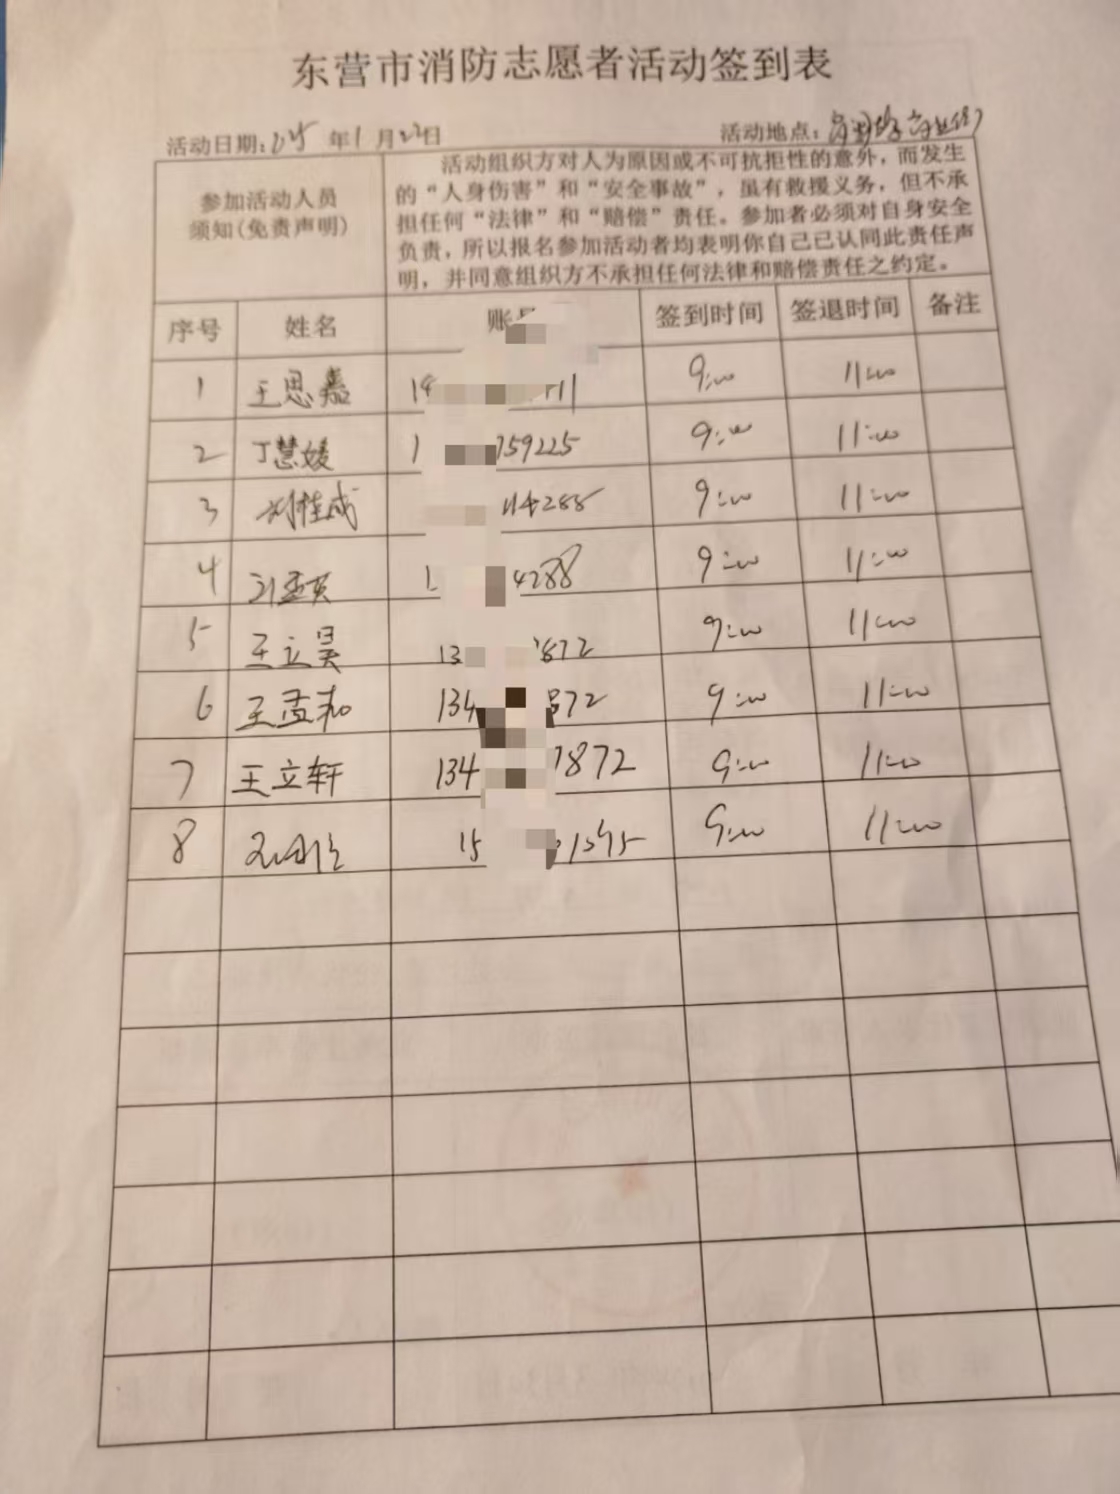 东营市消防志愿者活动签到表
活动日期: 年1月22日 活动地点:
参加活动人员
须知(免责声明)
活动组织方对人为原因或不可抗拒性的意外，而发生
的“人身伤害”和“安全事故”，虽有救援义务，但不承
担任何“法律”和“赔偿”责任。参加者必须对自身安全
负责，所以报名参加活动者均表明你自己已认同此责任声
明，并同意组织方不承担任何法律和赔偿责任之约定。
序号 姓名 账 签到时间 签退时间 备注
1 王思嘉 11 9:00 11:00
2 丁慧媛 1 759225 9:00 11:00
3 刘桂成 114288 9:00 11:00
4 刘孟英 1 4288 9:00 11:00
5 王立昊 13 872 9:00 11:00
6 王孟和 134 872 9:00 11:00
7 王立轩 134 1872 9:00 11:00
8 15 1595 9:00 11:00